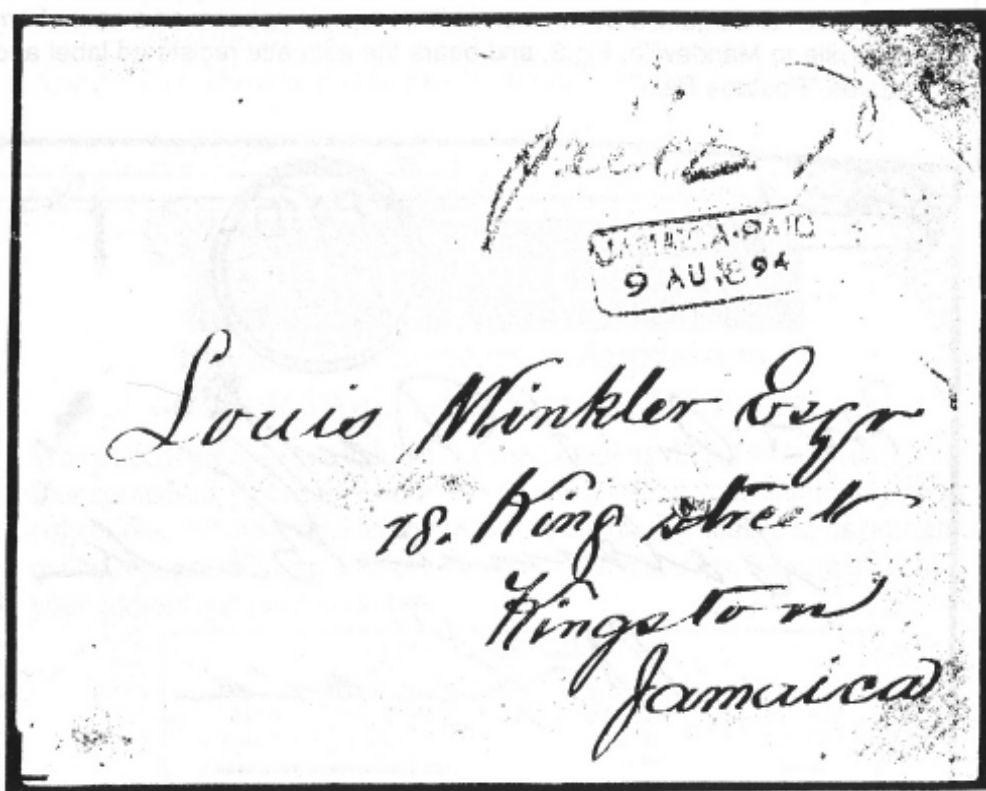 paid
JAMAICA·PAID
9 AU 94
Louis Winkler Esqr
18. King street
Kingston
Jamaica